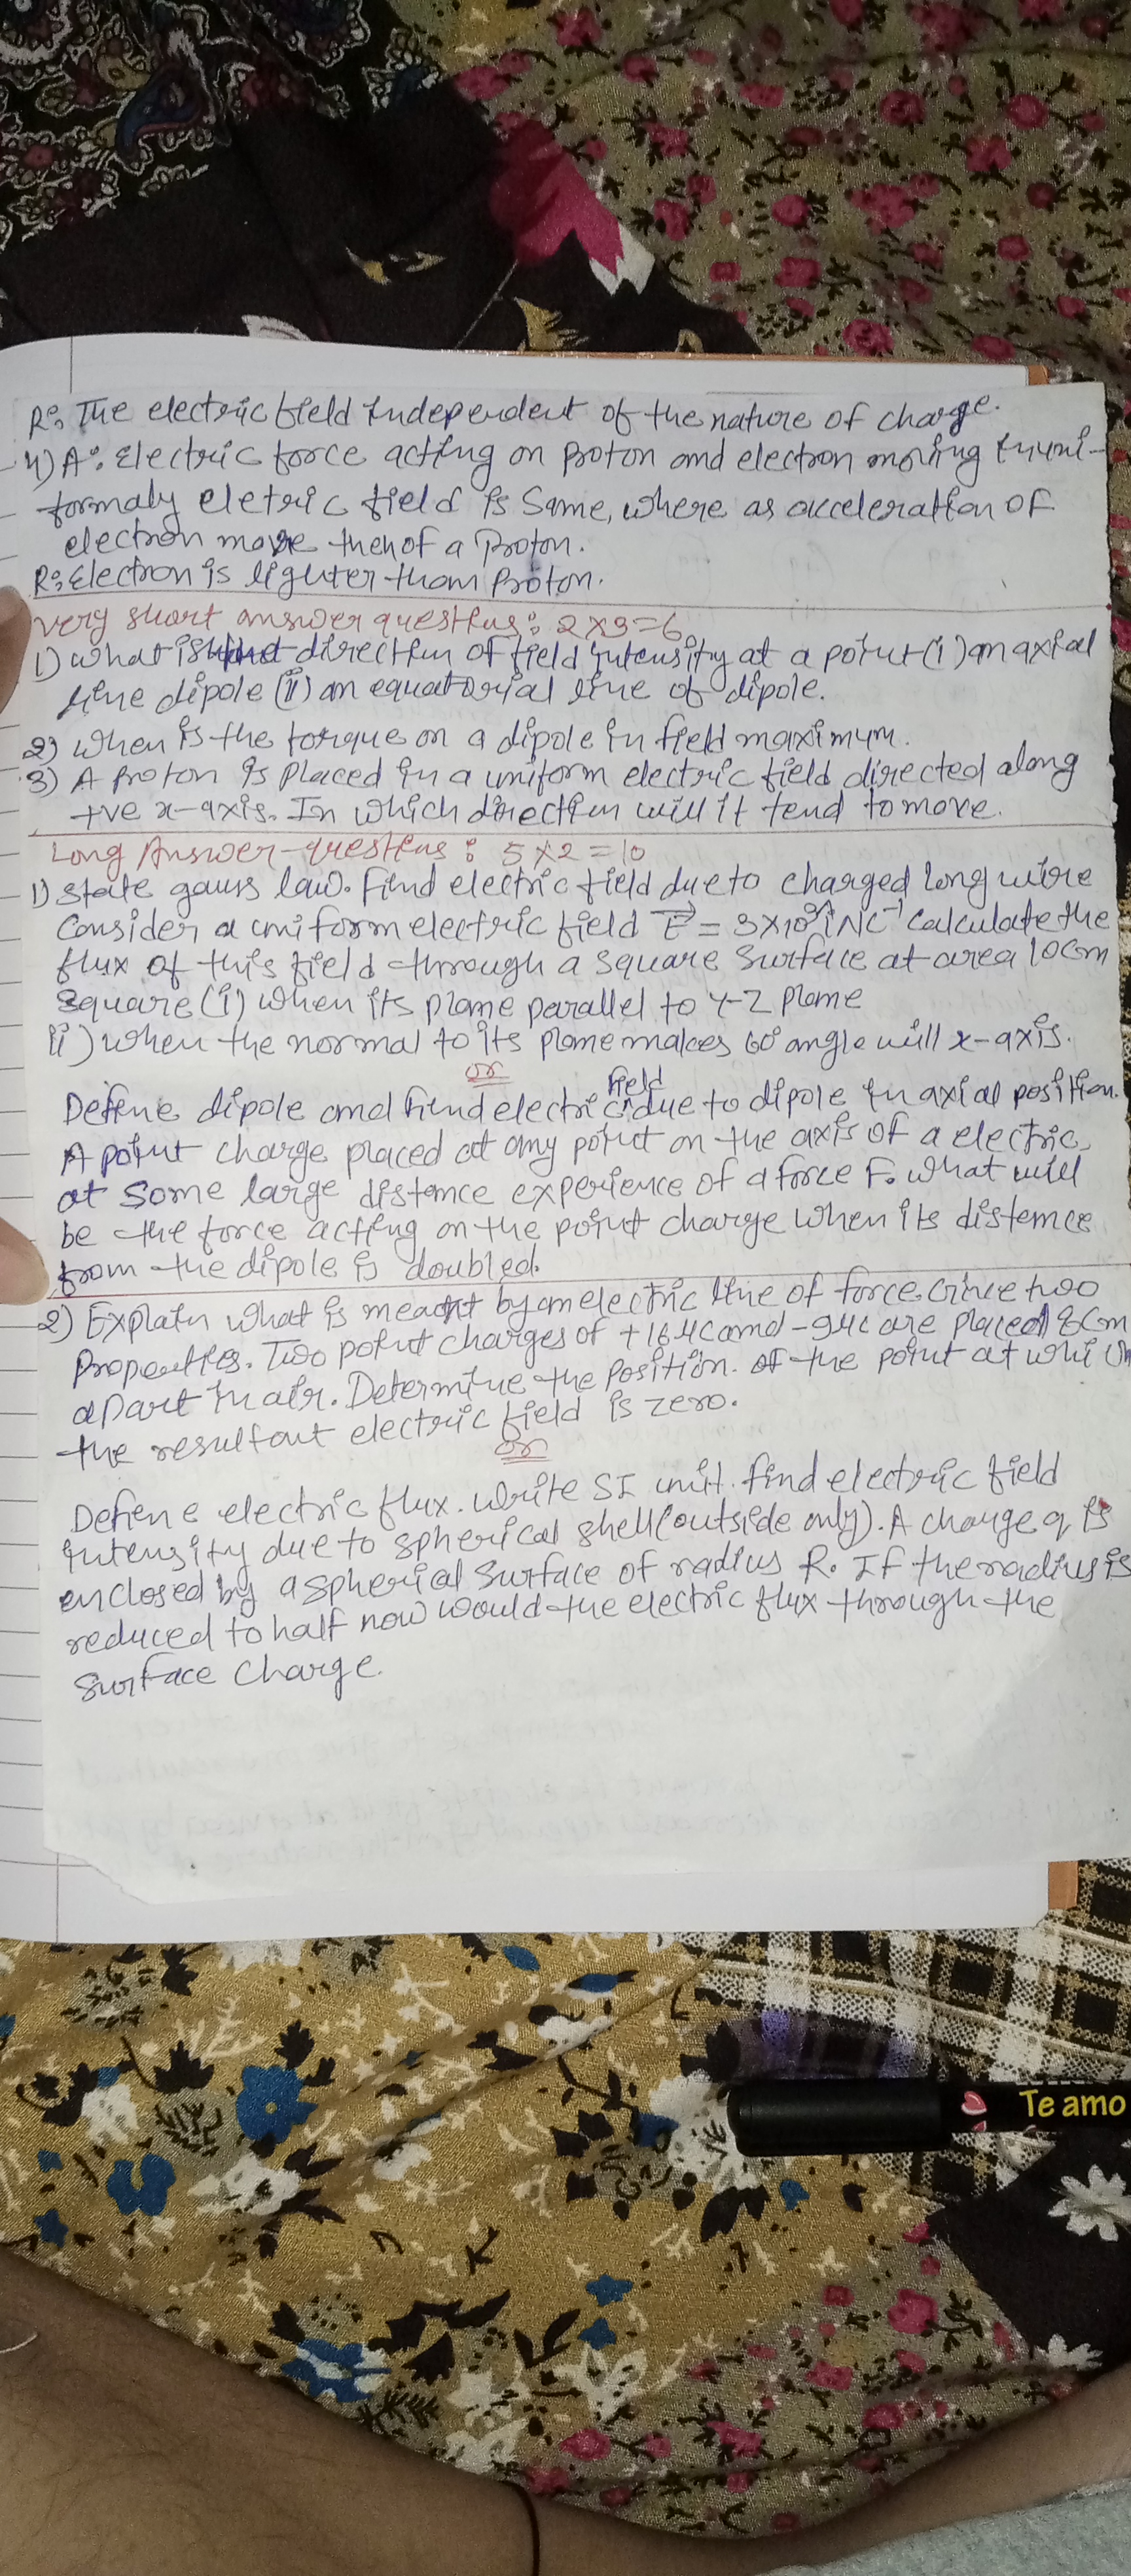 R: The electric field independent of the nature of charge.
4) A: Electric force acting on proton and electron moving in uni-
formaly eletric field is same, where as acceleration of
electron more then of a Proton.
R: Electron is lighter than Proton.
Very short answer questions: 2x3=6
1) what is direction of field intensity at a point (i) on axial
line dipole (ii) on equatorial line of dipole.
2) When is the torque on a dipole in field maximum.
3) A Proton is placed in a uniform electric field directed along
+ve x-axis. In which direction will it tend to move.
Long Answer-questions: 5x2=10
1) State gauss law. Find electric field due to charged long wire
Consider a uniform electric field E = 3x10³î NC⁻¹ Calculate the
flux of this field through a square surface at area 10cm
square (i) when its plane parallel to Y-Z plane
ii) when the normal to its plane makes 60° angle will x-axis.
or
Define dipole and find electric field due to dipole in axial position.
A point charge placed at any point on the axis of a electric
at some large distance experience of a force F. what will
be the force acting on the point charge when its distence
from the dipole is doubled.
2) Explain what is meant by an electric line of force. Give two
Properties. Two point charges of +16μC and -9μC are placed 8cm
apart in air. Determine the position of the point at which
the resultant electric field is zero.
or
Define electric flux. write SI unit. find electric field
intensity due to spherical shell (outside only). A charge q is
enclosed by a spherical surface of radius R. If the radius is
reduced to half now would the electric flux through the
surface charge.
Te amo